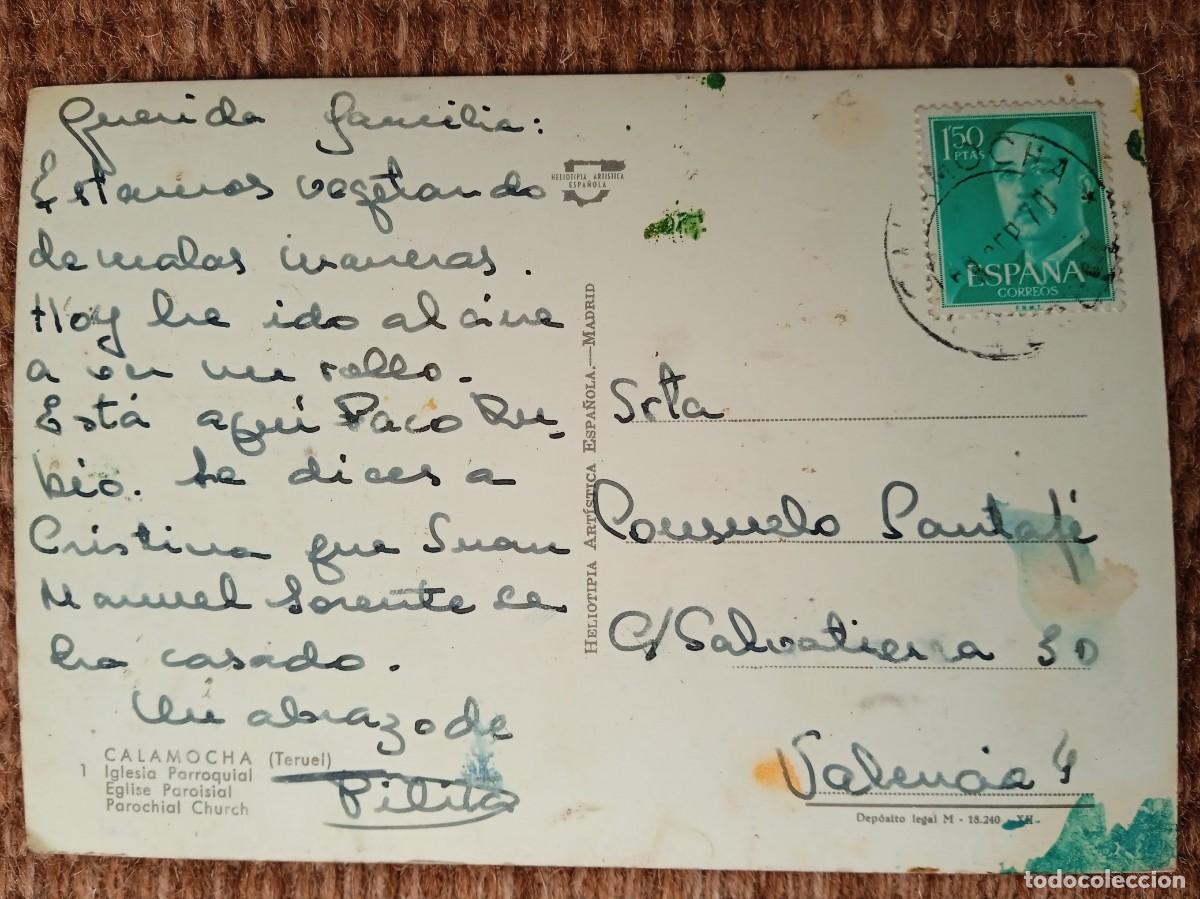 Querida familia:
Estamos vegetando
de malas maneras.
Hoy he ido al cine
a ver un rollo.
Está aquí Paco Ru-
bio. Le dices a
Cristina que Juan
Manuel Lorente se
ha casado.
Un abrazo de
Pilita
CALAMOCHA (Teruel)
1 Iglesia Parroquial
Eglise Paroisial
Parochial Church
HELIOTIPIA ARTISTICA
ESPAÑOLA
HELIOTIPIA ARTÍSTICA ESPAÑOLA.—MADRID
1'50
PTAS
ESPAÑA
CORREOS
Srta
Consuelo Santafé
C/ Salvatierra 30
Valencia 4
Depósito legal M - 18.240 - XII.
todocoleccion